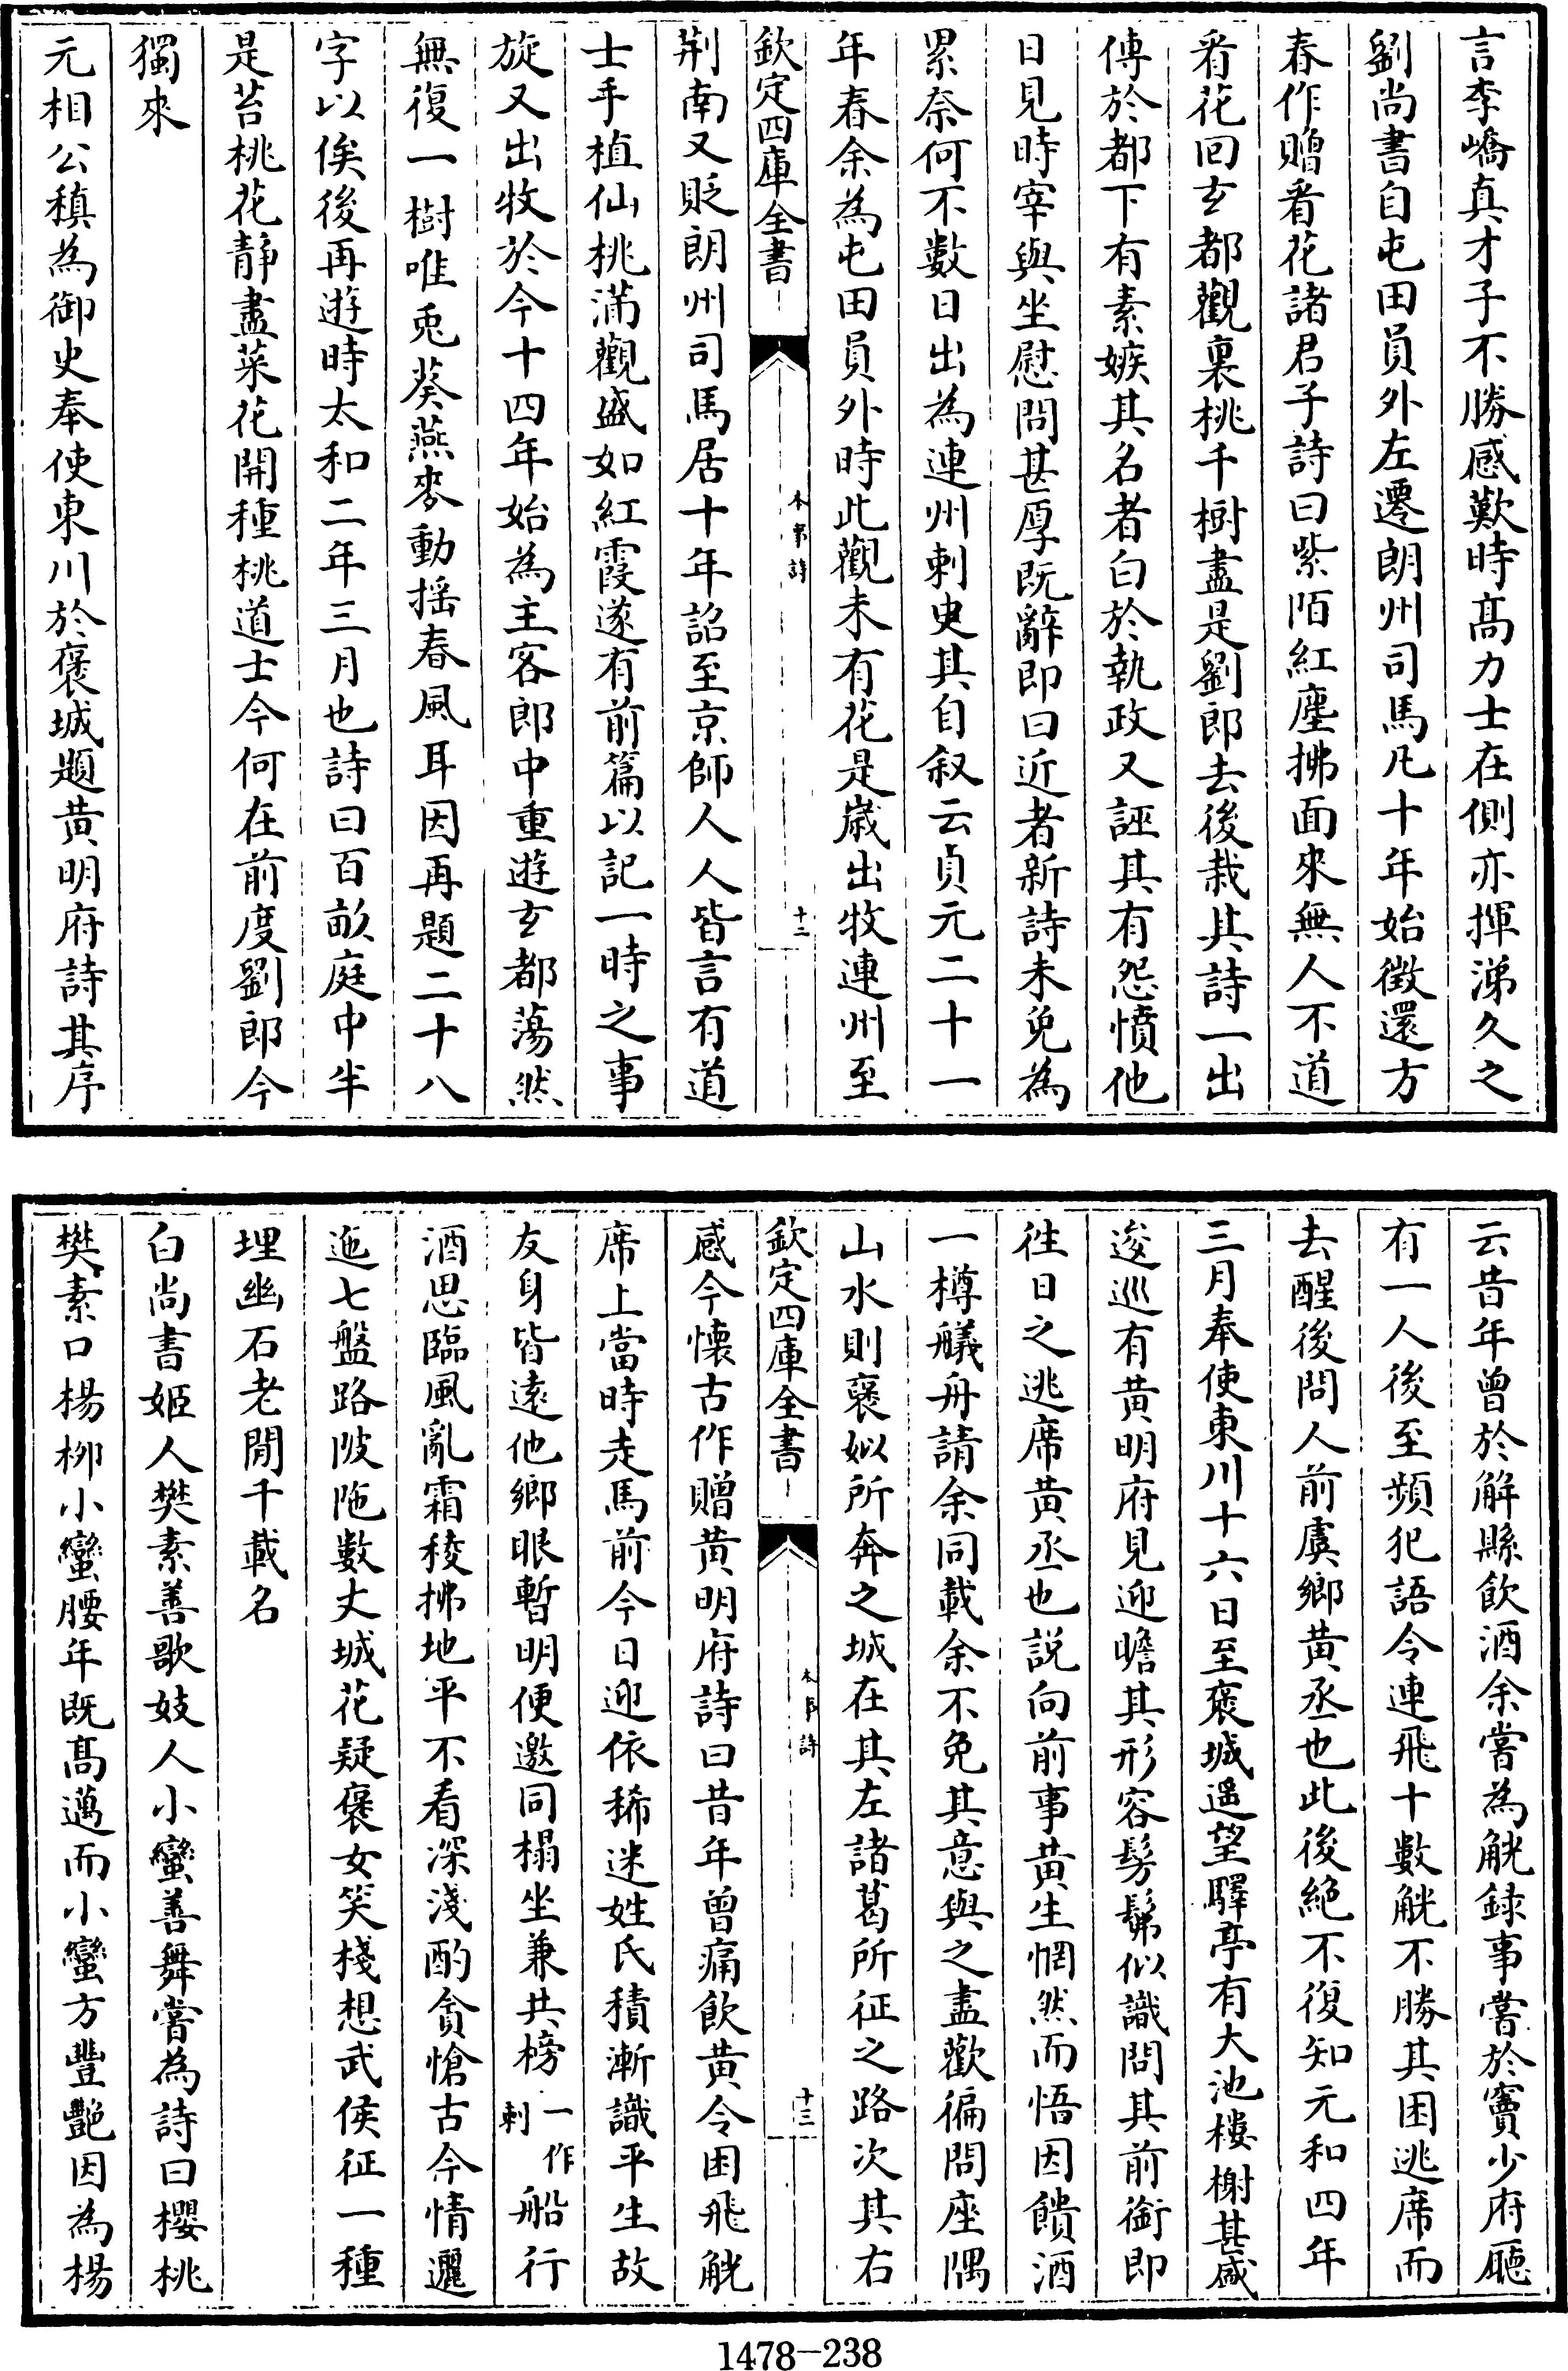 言李嶠真才子不勝感歎時髙力士在側亦揮涕久之
劉尚書自屯田員外左遷朗州司馬凡十年始徴還方
春作贈看花諸君子詩曰紫陌紅塵拂面來無人不道
看花回玄都觀裏桃千樹盡是劉郎去後栽其詩一出
傳於都下有素嫉其名者白於執政又誣其有怨憤他
日見時宰與坐慰問甚厚既辭即曰近者新詩未免為
累奈何不數日出為連州刺史其自叙云貞元二十一
年春余為屯田員外時此觀未有花是嵗出牧連州至
欽定四庫全書
本事詩
十二
荆南又貶朗州司馬居十年詔至京師人人皆言有道
士手植仙桃滿觀盛如紅霞遂有前篇以記一時之事
旋又出牧於今十四年始為主客郎中重遊玄都蕩然
無復一樹唯兎葵燕麥動揺春風耳因再題二十八
字以俟後再遊時太和二年三月也詩曰百畝庭中半
是苔桃花靜盡菜花開種桃道士今何在前度劉郎今
獨來
元相公稹為御史奉使東川於褒城題黄明府詩其序
云昔年曾於解縣飲酒余嘗為觥録事嘗於竇少府廳
有一人後至頻犯語令連飛十數觥不勝其困逃席而
去醒後問人前虞鄉黄丞也此後絶不復知元和四年
三月奉使東川十六日至褒城遥望驛亭有大池樓榭甚盛
逡巡有黄明府見迎瞻其形容髣髴似識問其前銜即
徃日之逃席黄丞也説向前事黄生惘然而悟因饋酒
一樽艤舟請余同載余不免其意與之盡歡徧問座隅
山水則襃姒所奔之城在其左諸葛所征之路次其右
欽定四庫全書
本事詩
十三
感今懐古作贈黄明府詩曰昔年曾痛飲黄令困飛觥
席上當時走馬前今日迎依稀迷姓氏積漸識平生故
友身皆逺他鄉眼暫明便邀同榻坐兼共榜一作刺船行
酒思臨風亂霜稜拂地平不看深淺酌貪愴古今情邐
迤七盤路陂陁數丈城花疑褒女笑棧想武侯征一種
埋幽石老閒千載名
白尚書姬人樊素善歌妓人小蠻善舞嘗為詩曰櫻桃
樊素口楊栁小蠻腰年既髙邁而小蠻方豐艶因為楊
1478-238